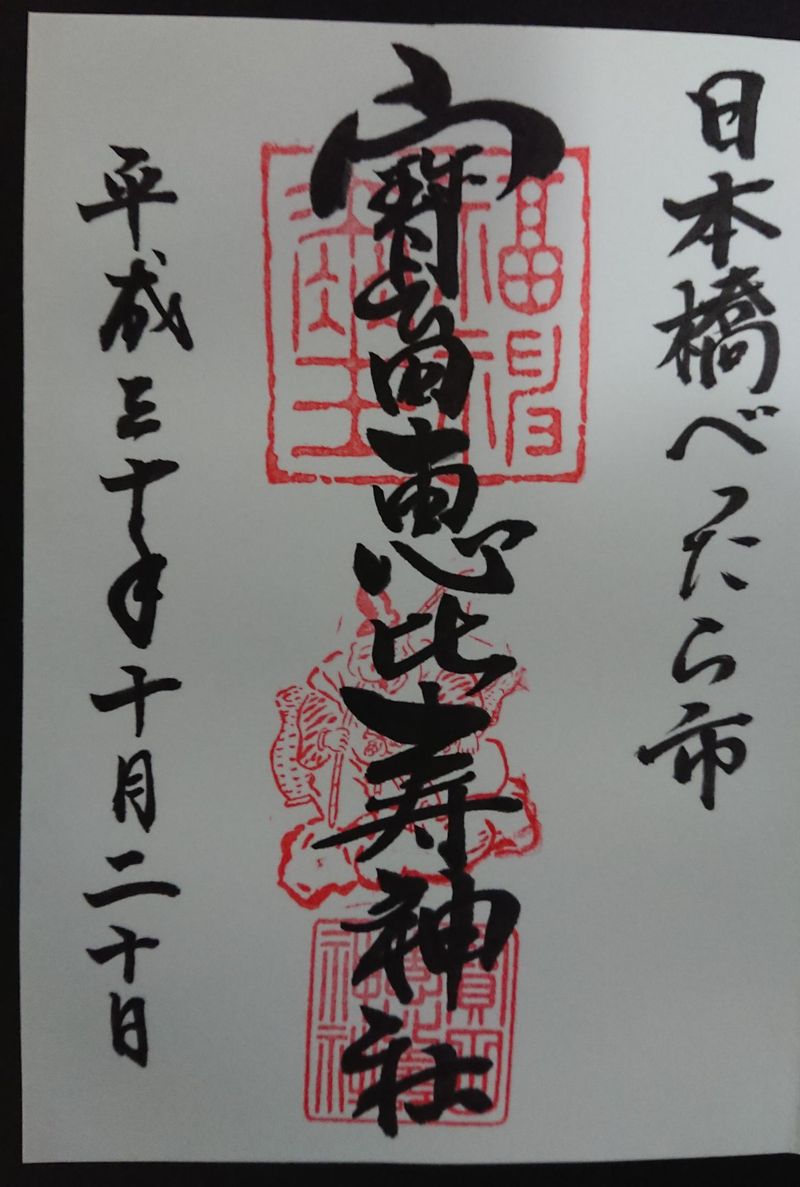 日本橋べったら市
寳田恵比寿神社
平成三十年十月二十日